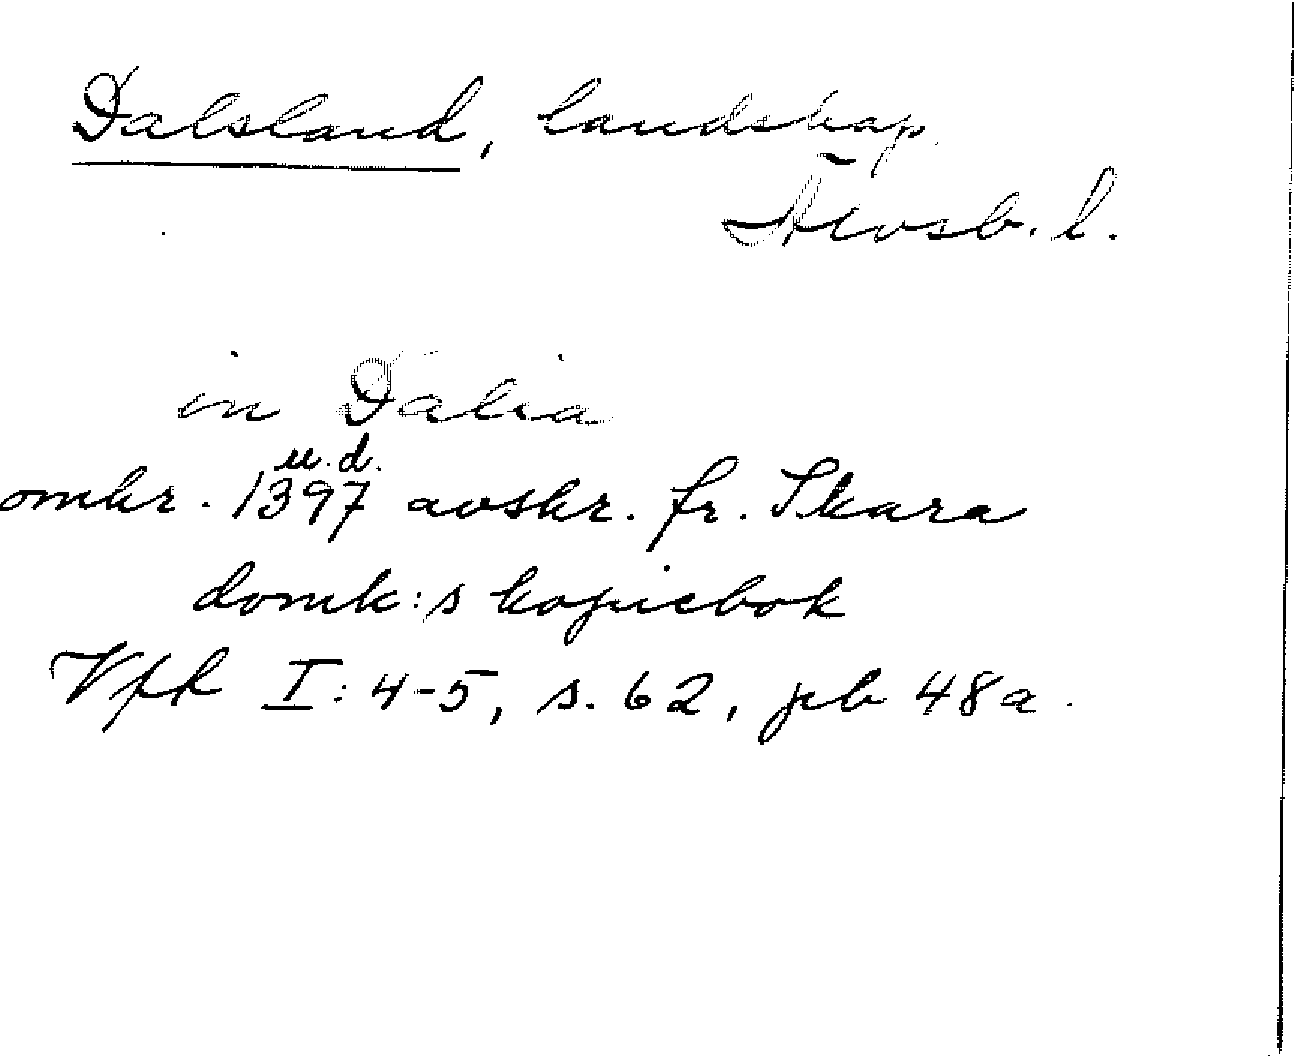 Dalsland, landskap
Älvsb. l.
in Dalia
u.d.
omkr. 1397 avskr. fr. Skara
domk:s kopiebok
Vfk I: 4-5, s. 62, pb 48a.